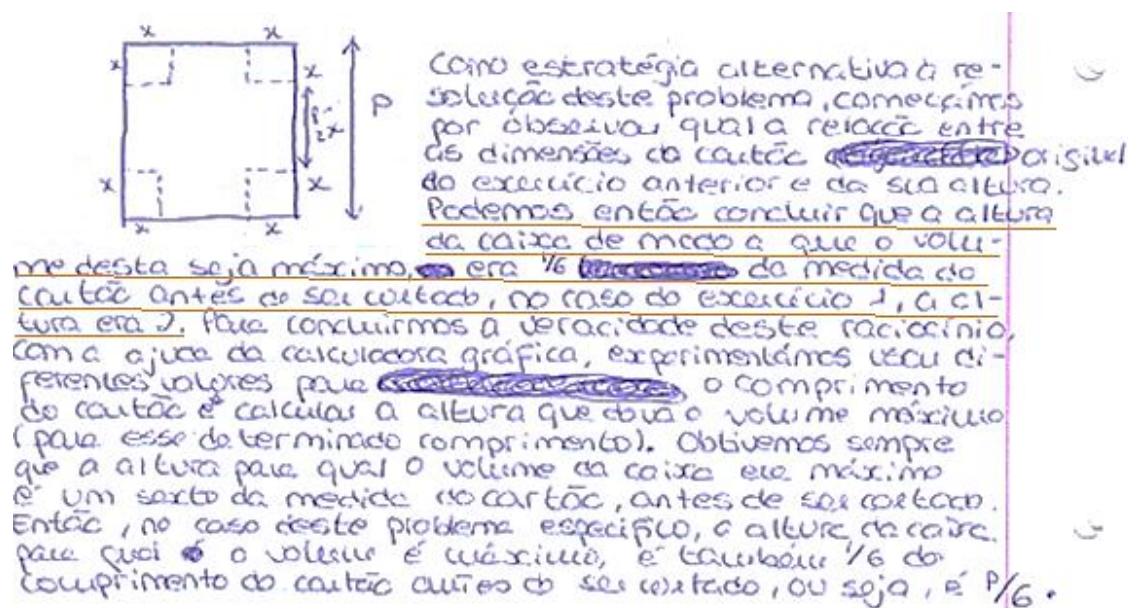 x x
x x
P-2x
P
x x
x x
Como estratégia alternativa à re-
solução deste problema, começámos
por observar qual a relação entre
as dimensões do cartão original
do exercício anterior e da sua altura.
Podemos então concluir que a altura
da caixa de modo a que o volu-
me desta seja máximo, era 1/6 da medida do
cartão antes de ser cortado, no caso do exercício 1, a al-
tura era 2. Para concluirmos a veracidade deste raciocínio,
com a ajuda da calculadora gráfica, experimentámos usar di-
ferentes valores para o comprimento
do cartão e calcular a altura que dava o volume máximo
(para esse determinado comprimento). Obtivemos sempre
que a altura para qual o volume da caixa era máximo
é um sexto da medida do cartão, antes de ser cortado.
Então, no caso deste problema específico, a altura da caixa
para qual o volume é máximo, é também 1/6 do
comprimento do cartão antes de ser cortado, ou seja, é P/6.